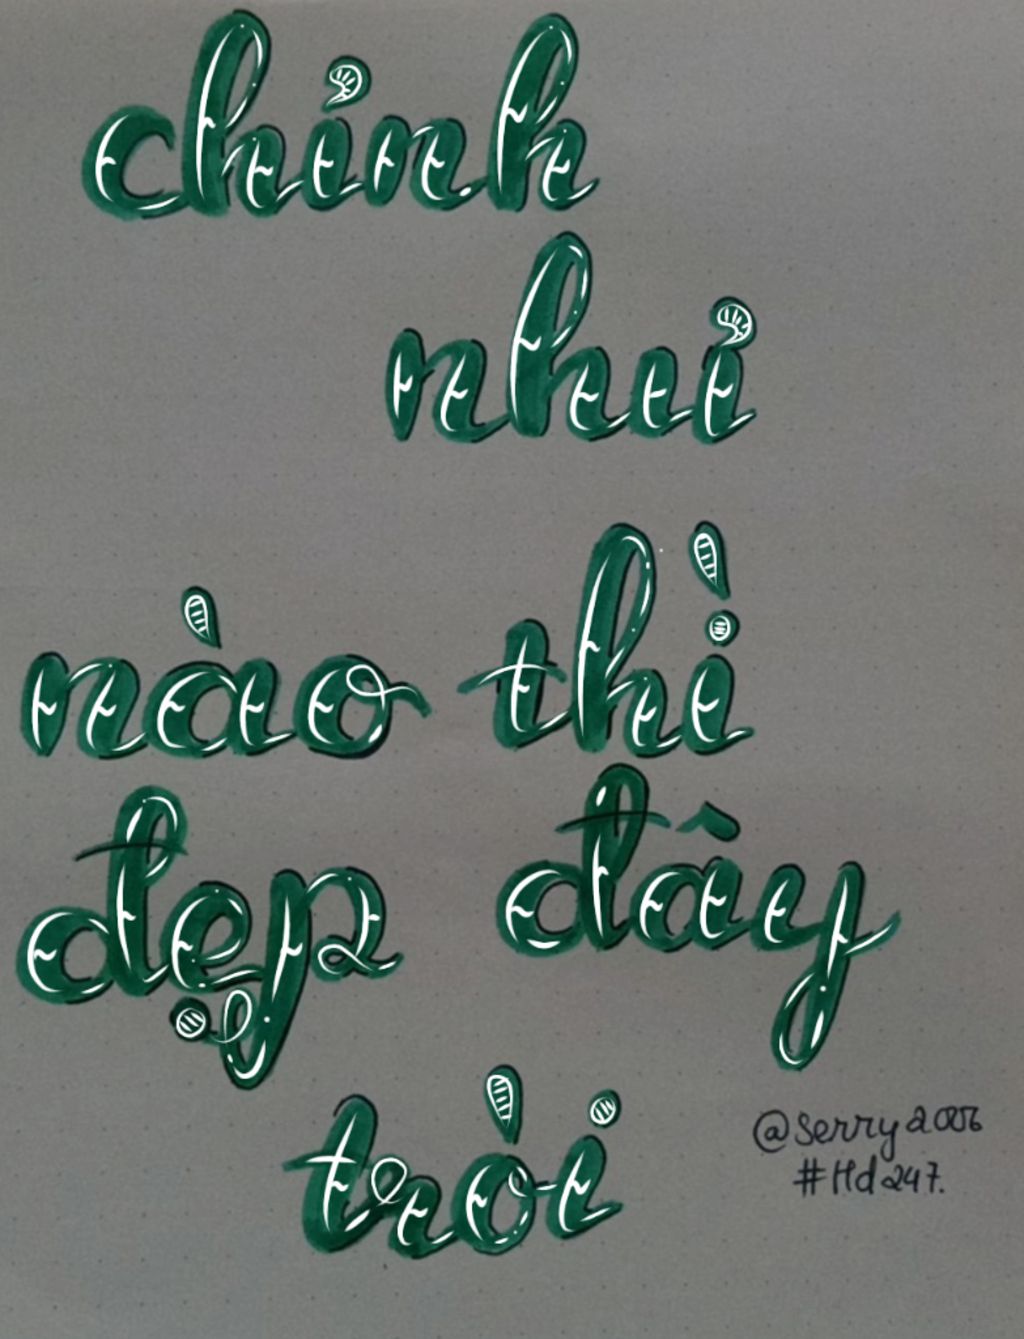 chỉnh
nhủi
nào thì
đẹp đây
tròi
@serry2006
#Hd247.